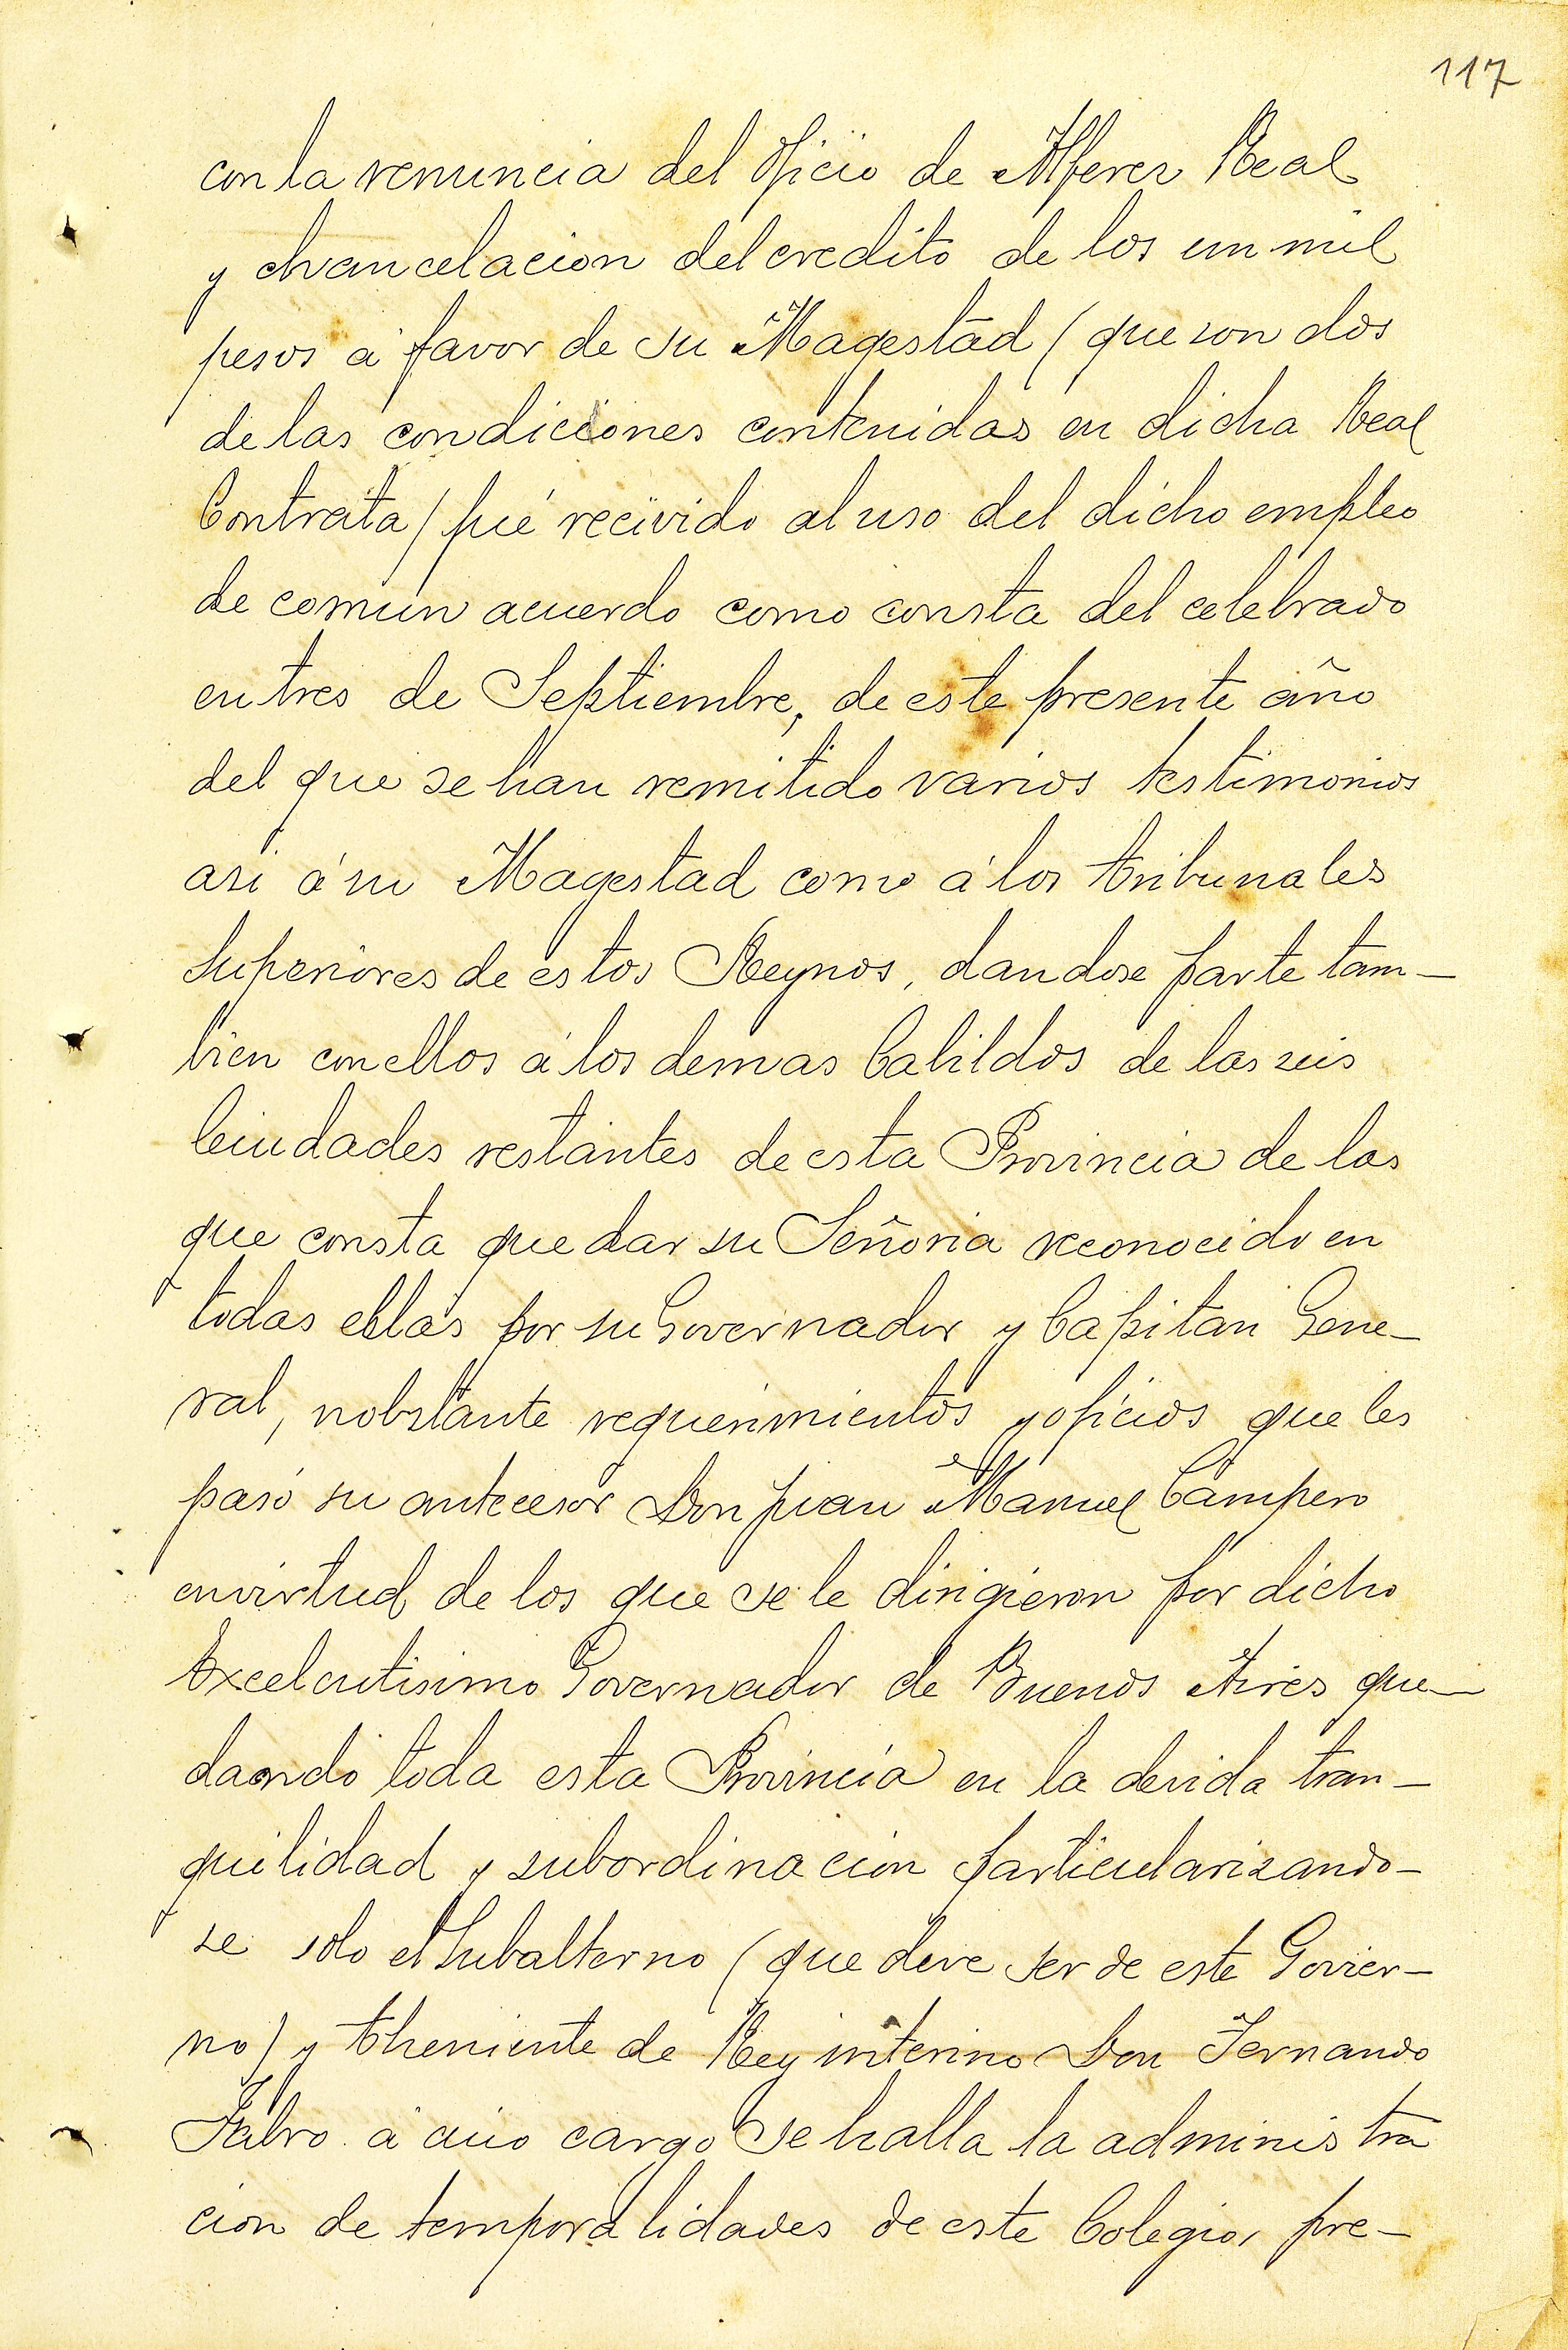 117
con la renuncia del Oficio de Alferez Real
y chancelacion del credito de los un mil
pesos á favor de su Magestad (que son dos
de las condiciones contenidas en dicha Real
Contrata) fué recivido al uso del dicho empleo
de comun acuerdo como consta del celebrado
en tres de Septiembre, de este presente año
del que se han remitido varios testimonios
asi á su Magestad como á los tribunales
Superiores de estos Reynos, dandose parte tam-
bien con ellos á los demas Cabildos de las seis
Ciudades restantes de esta Provincia de las
que consta quedar su Señoria reconocido en
todas ellas por su Governador y Capitan Gene-
ral, nobstante requerimientos y oficios que les
pasó su antecesor Don Juan Manuel Campero
en virtud de los que se le dirigieron por dicho
Excelentisimo Governador de Buenos Aires que-
dando toda esta Provincia en la devida tran-
quilidad y subordinacion particularizando-
se solo el Subalterno (que deve ser de este Govier-
no) y theniente de Rey interino Don Fernando
Fabro á cuio cargo se halla la administra
cion de temporalidades de este Colegio, pre-